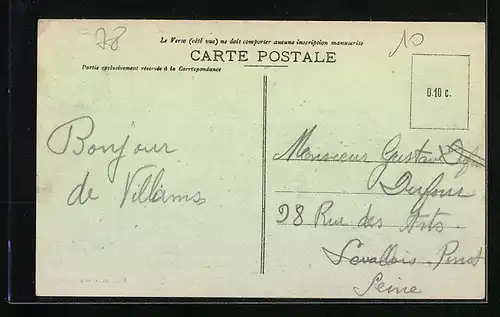 78
10
Le Verso (côté vue) ne doit comporter aucune inscription manuscrite
CARTE POSTALE
Partie exclusivement réservée à la Correspondance
0.10 c.
Bonjour
de Villams
Monsieur Gustave
Dufour
28 Rue des Arts.
Levallois. Perret
Seine